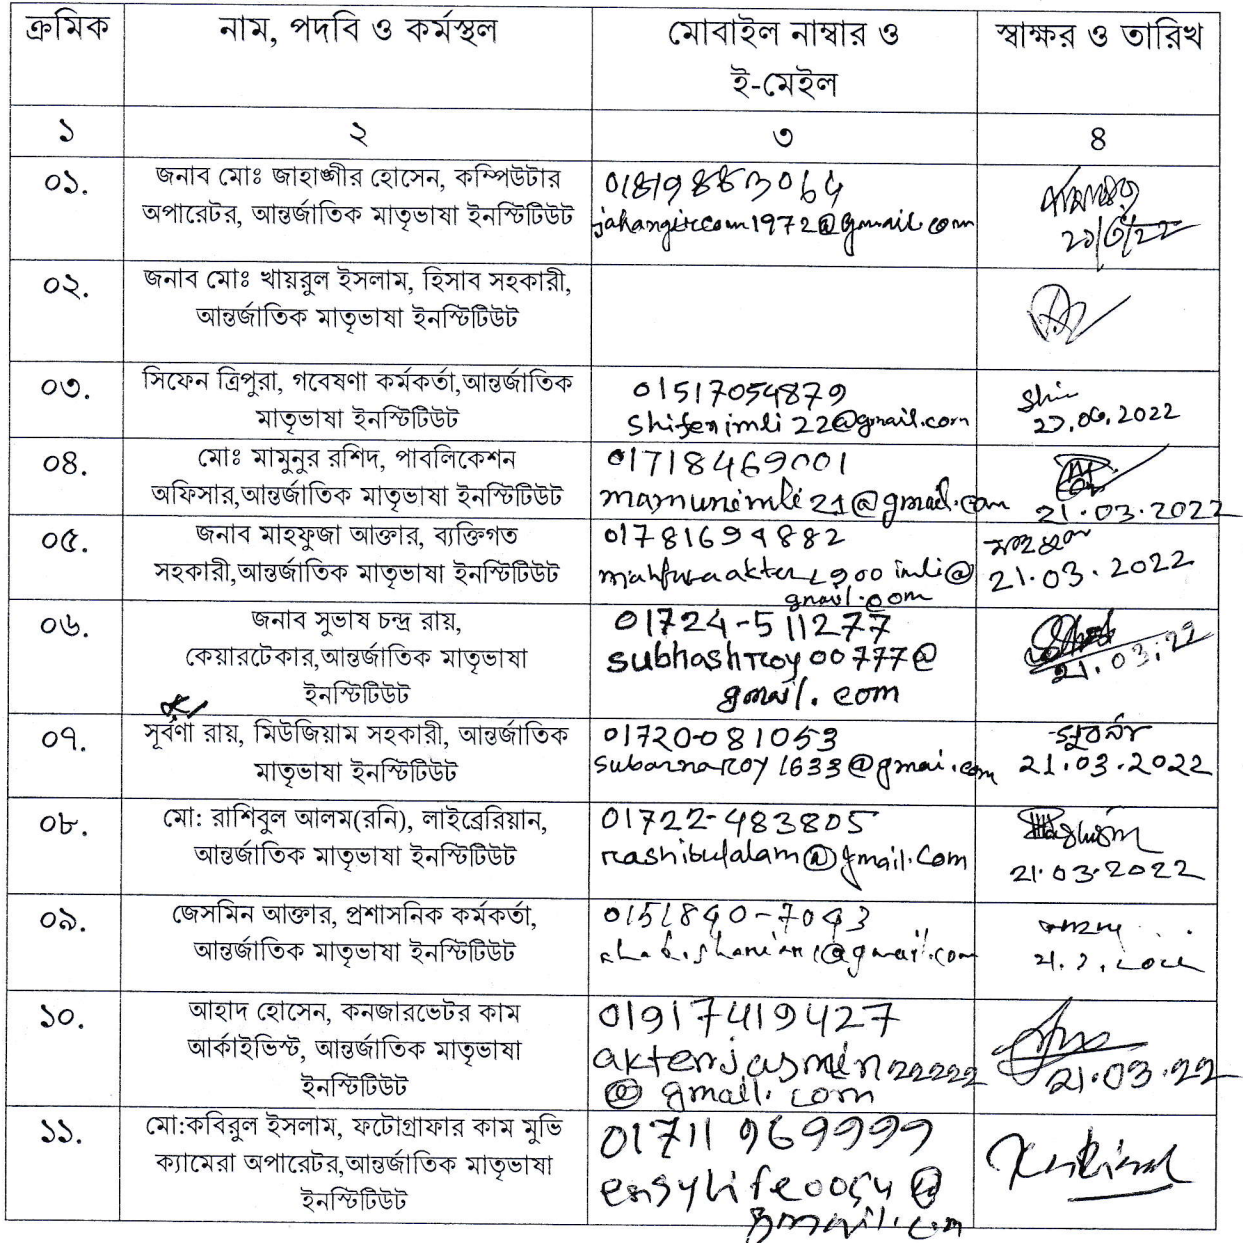 ক্রমিক নাম, পদবি ও কর্মস্থল মোবাইল নাম্বার ও স্বাক্ষর ও তারিখ
ই-মেইল
১ ২ ৩ 8
০১. জনাব মোঃ জাহাঙ্গীর হোসেন, কম্পিউটার
অপারেটর, আন্তর্জাতিক মাতৃভাষা ইনস্টিটিউট
jahangircom1972@gmail.com
০২. জনাব মোঃ খায়রুল ইসলাম, হিসাব সহকারী,
আন্তর্জাতিক মাতৃভাষা ইনস্টিটিউট
০৩. সিফেন ত্রিপুরা, গবেষণা কর্মকর্তা,আন্তর্জাতিক
মাতৃভাষা ইনস্টিটিউট
01517054879
shifenimli22@gmail.com
০৪. মোঃ মামুনুর রশিদ, পাবলিকেশন
অফিসার,আন্তর্জাতিক মাতৃভাষা ইনস্টিটিউট
01718469001
mamunimli21@gmail.com
21.03.2022
০৫. জনাব মাহফুজা আক্তার, ব্যক্তিগত
সহকারী,আন্তর্জাতিক মাতৃভাষা ইনস্টিটিউট
gmail.com
21.03.2022
০৬. জনাব সুভাষ চন্দ্র রায়,
কেয়ারটেকার,আন্তর্জাতিক মাতৃভাষা
ইনস্টিটিউট
01724-511277
subhashroy00777@
gmail.com
21.03.22
০৭. সূর্বণা রায়, মিউজিয়াম সহকারী, আন্তর্জাতিক
মাতৃভাষা ইনস্টিটিউট
01720-081053
subarnaroy1633@gmai.com
সুবর্ণা
21.03.2022
০৮. মো: রাশিবুল আলম(রনি), লাইব্রেরিয়ান,
আন্তর্জাতিক মাতৃভাষা ইনস্টিটিউট
01722-483805
rashibulalam@gmail.com
21.03.2022
০৯. জেসমিন আক্তার, প্রশাসনিক কর্মকর্তা,
আন্তর্জাতিক মাতৃভাষা ইনস্টিটিউট
১০. আহাদ হোসেন, কনজারভেটর কাম
আর্কাইভিস্ট, আন্তর্জাতিক মাতৃভাষা
ইনস্টিটিউট
01917419427
akterjasmin22222
@gmail.com
21.03.22
১১. মো:কবিরুল ইসলাম, ফটোগ্রাফার কাম মুভি
ক্যামেরা অপারেটর,আন্তর্জাতিক মাতৃভাষা
ইনস্টিটিউট
01711969999
gmail.com